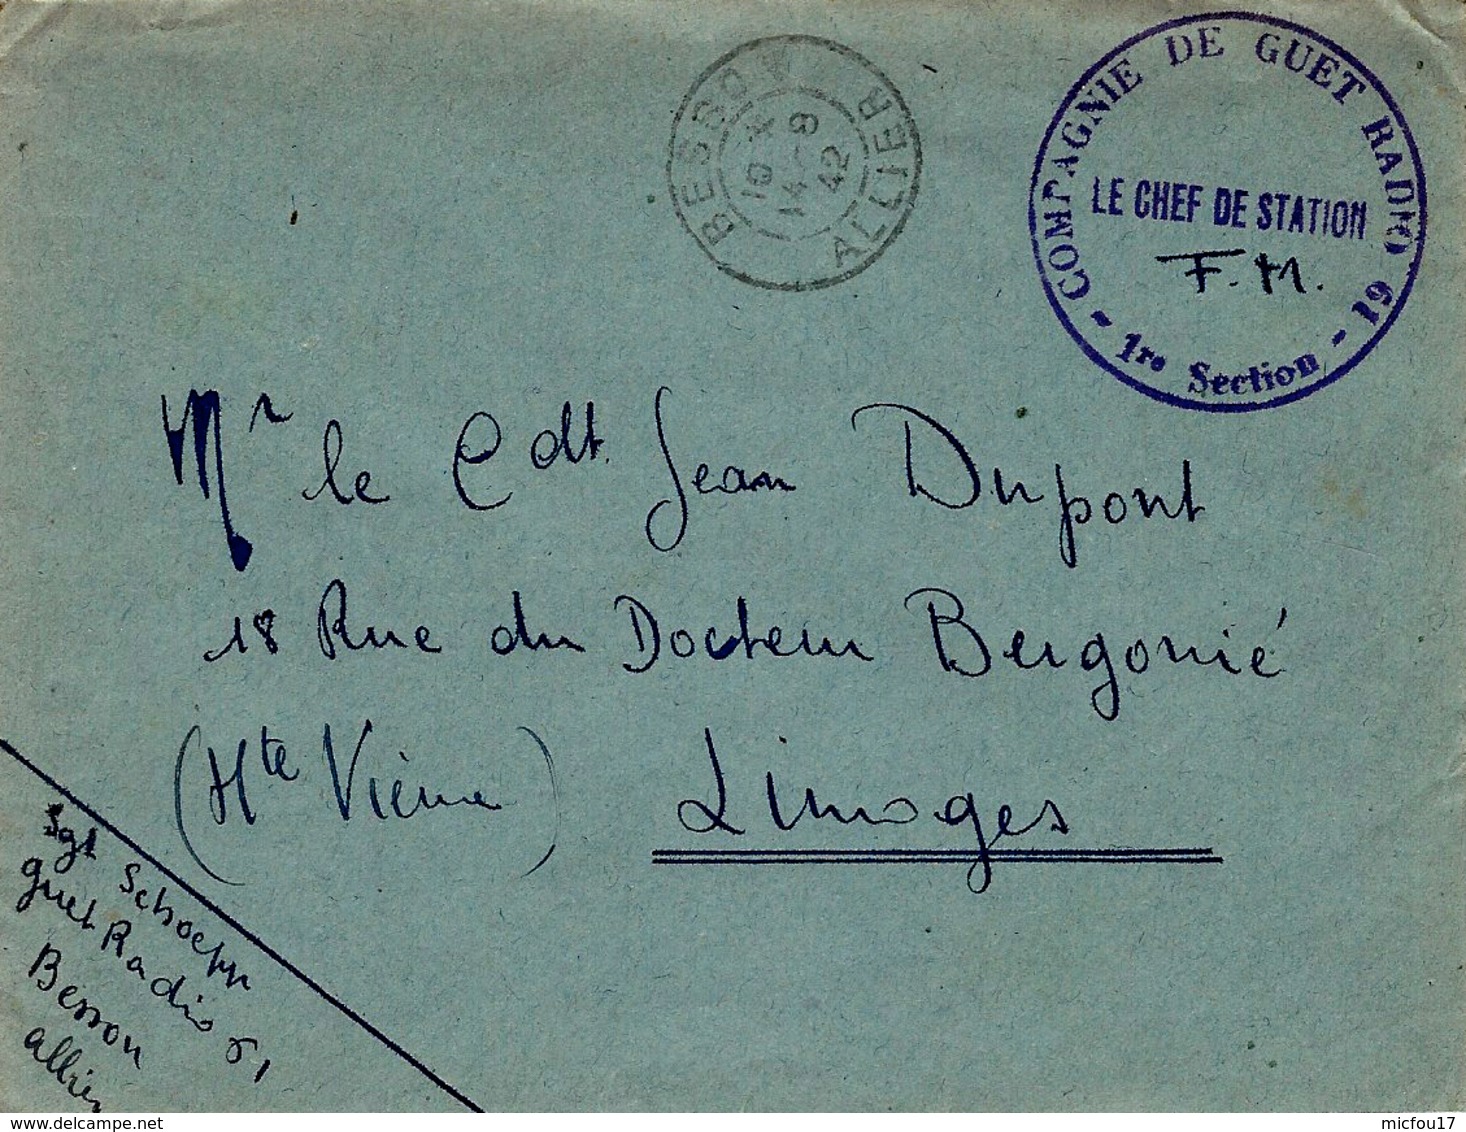 BESSON ALLIER
10 X
14 - 9
42
COMPAGNIE DE GUET RADIO 61
LE CHEF DE STATION
F.M.
- 1re Section -
Mr le Cdt. Jean Dupont
18 Rue du Docteur Bergonié
(Hte Vienne) Limoges
Sgt Schoepp
guet Radio 61
Besson
allier
delcampe.net
micfou17